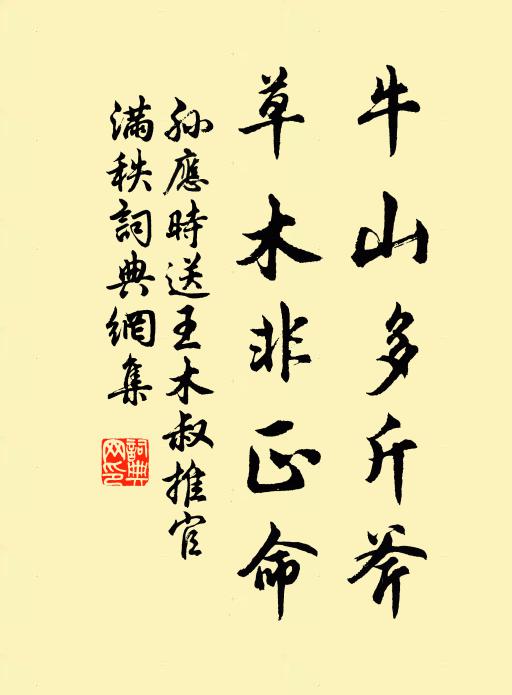 牛山多斤斧
草木非正命
孙應時送王木叔推官
滿秩詞典網集
詞典网印